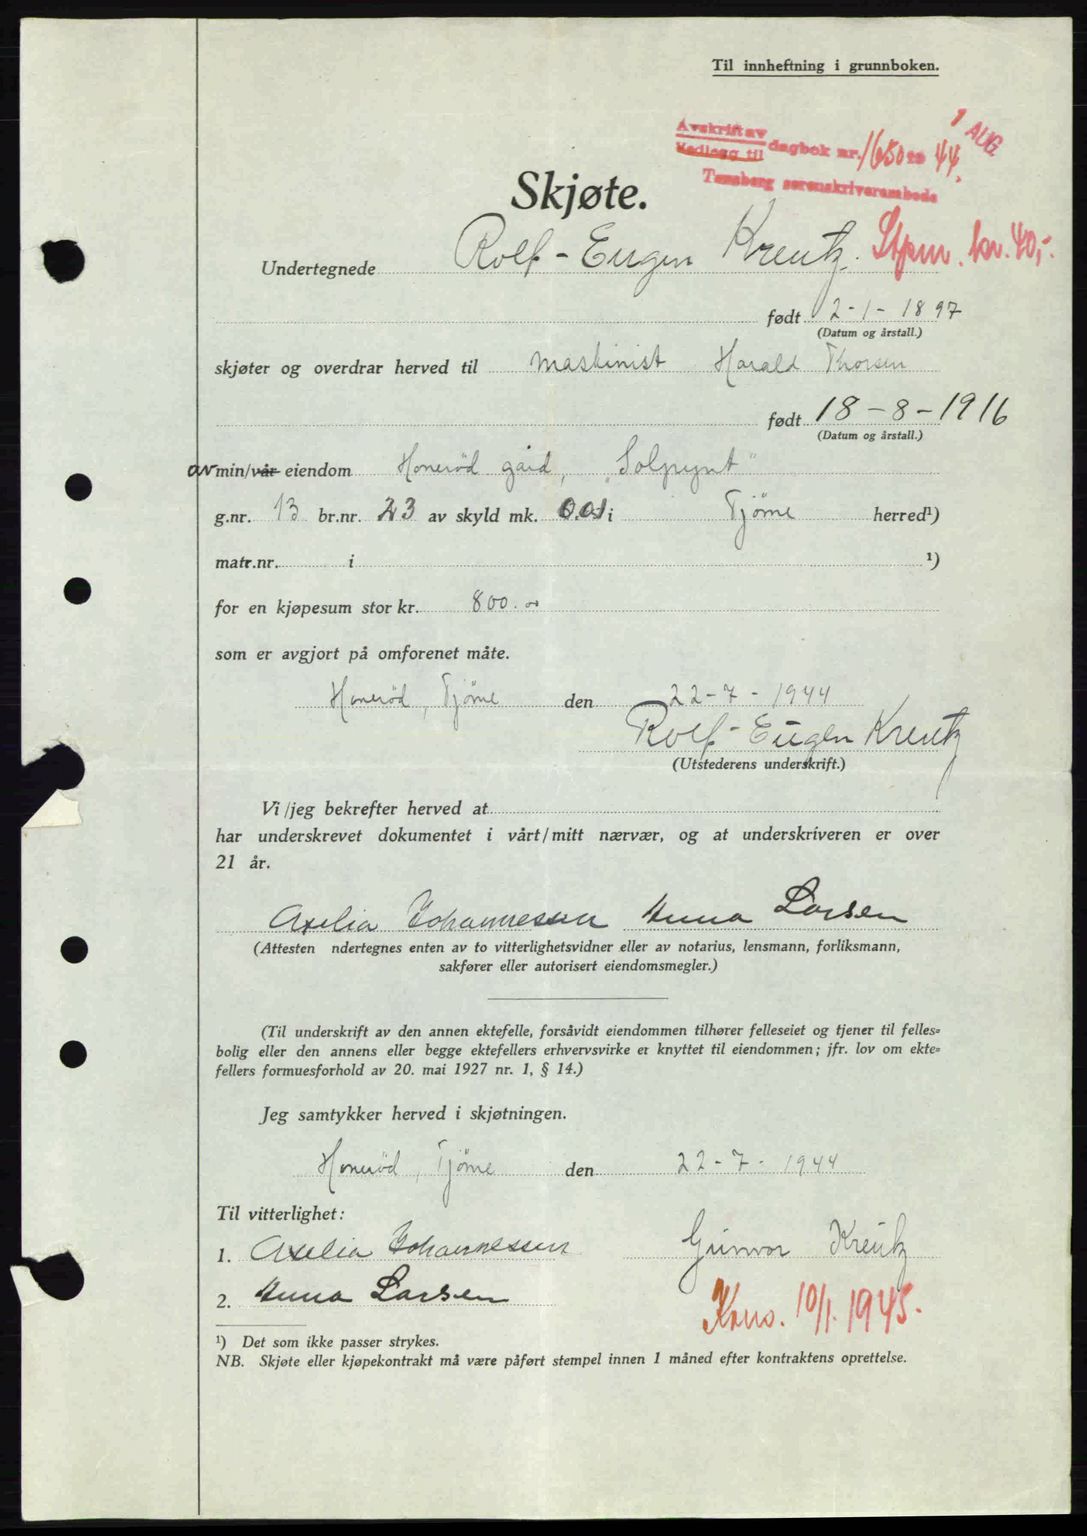 Til innheftning i grunnboken.
1 AUG
Avskrift av
Vedlegg til dagbok nr. 1650 19 44.
Tønsberg sorenskriverembede
Skjøte.
Stpm. kr. 40,-
Undertegnede Rolf-Eugen Kreutz.
født 2-1-1897
(Datum og årstall.)
skjøter og overdrar herved til maskinist Harald Thorsen
født 18-8-1916
(Datum og årstall.)
av min/vår eiendom Honerød gård, "Solpynt"
g.nr. 13 br.nr. 23 av skyld mk. 0.01 i Tjøme herred¹)
matr.nr. i ¹)
for en kjøpesum stor kr. 800.
som er avgjort på omforenet måte.
Honerød, Tjøme den 22-7-1944
Rolf-Eugen Kreutz
(Utstederens underskrift.)
Vi/jeg bekrefter herved at
har underskrevet dokumentet i vårt/mitt nærvær, og at underskriveren er over
21 år.
Axelia Johannessen Anna Larsen
(Attesten ndertegnes enten av to vitterlighetsvidner eller av notarius, lensmann, forliksmann,
sakfører eller autorisert eiendomsmegler.)
(Til underskrift av den annen ektefelle, forsåvidt eiendommen tilhører felleseiet og tjener til felles=
bolig eller den annens eller begge ektefellers erhvervsvirke er knyttet til eiendommen; jfr. lov om ekte=
fellers formuesforhold av 20. mai 1927 nr. 1, § 14.)
Jeg samtykker herved i skjøtningen.
Honerød, Tjøme den 22-7-1944
Til vitterlighet:
1. Axelia Johannessen Gunvor Kreutz
2. Anna Larsen
10/1. 1945.
¹) Det som ikke passer strykes.
NB. Skjøte eller kjøpekontrakt må være påført stempel innen 1 måned efter kontraktens oprettelse.